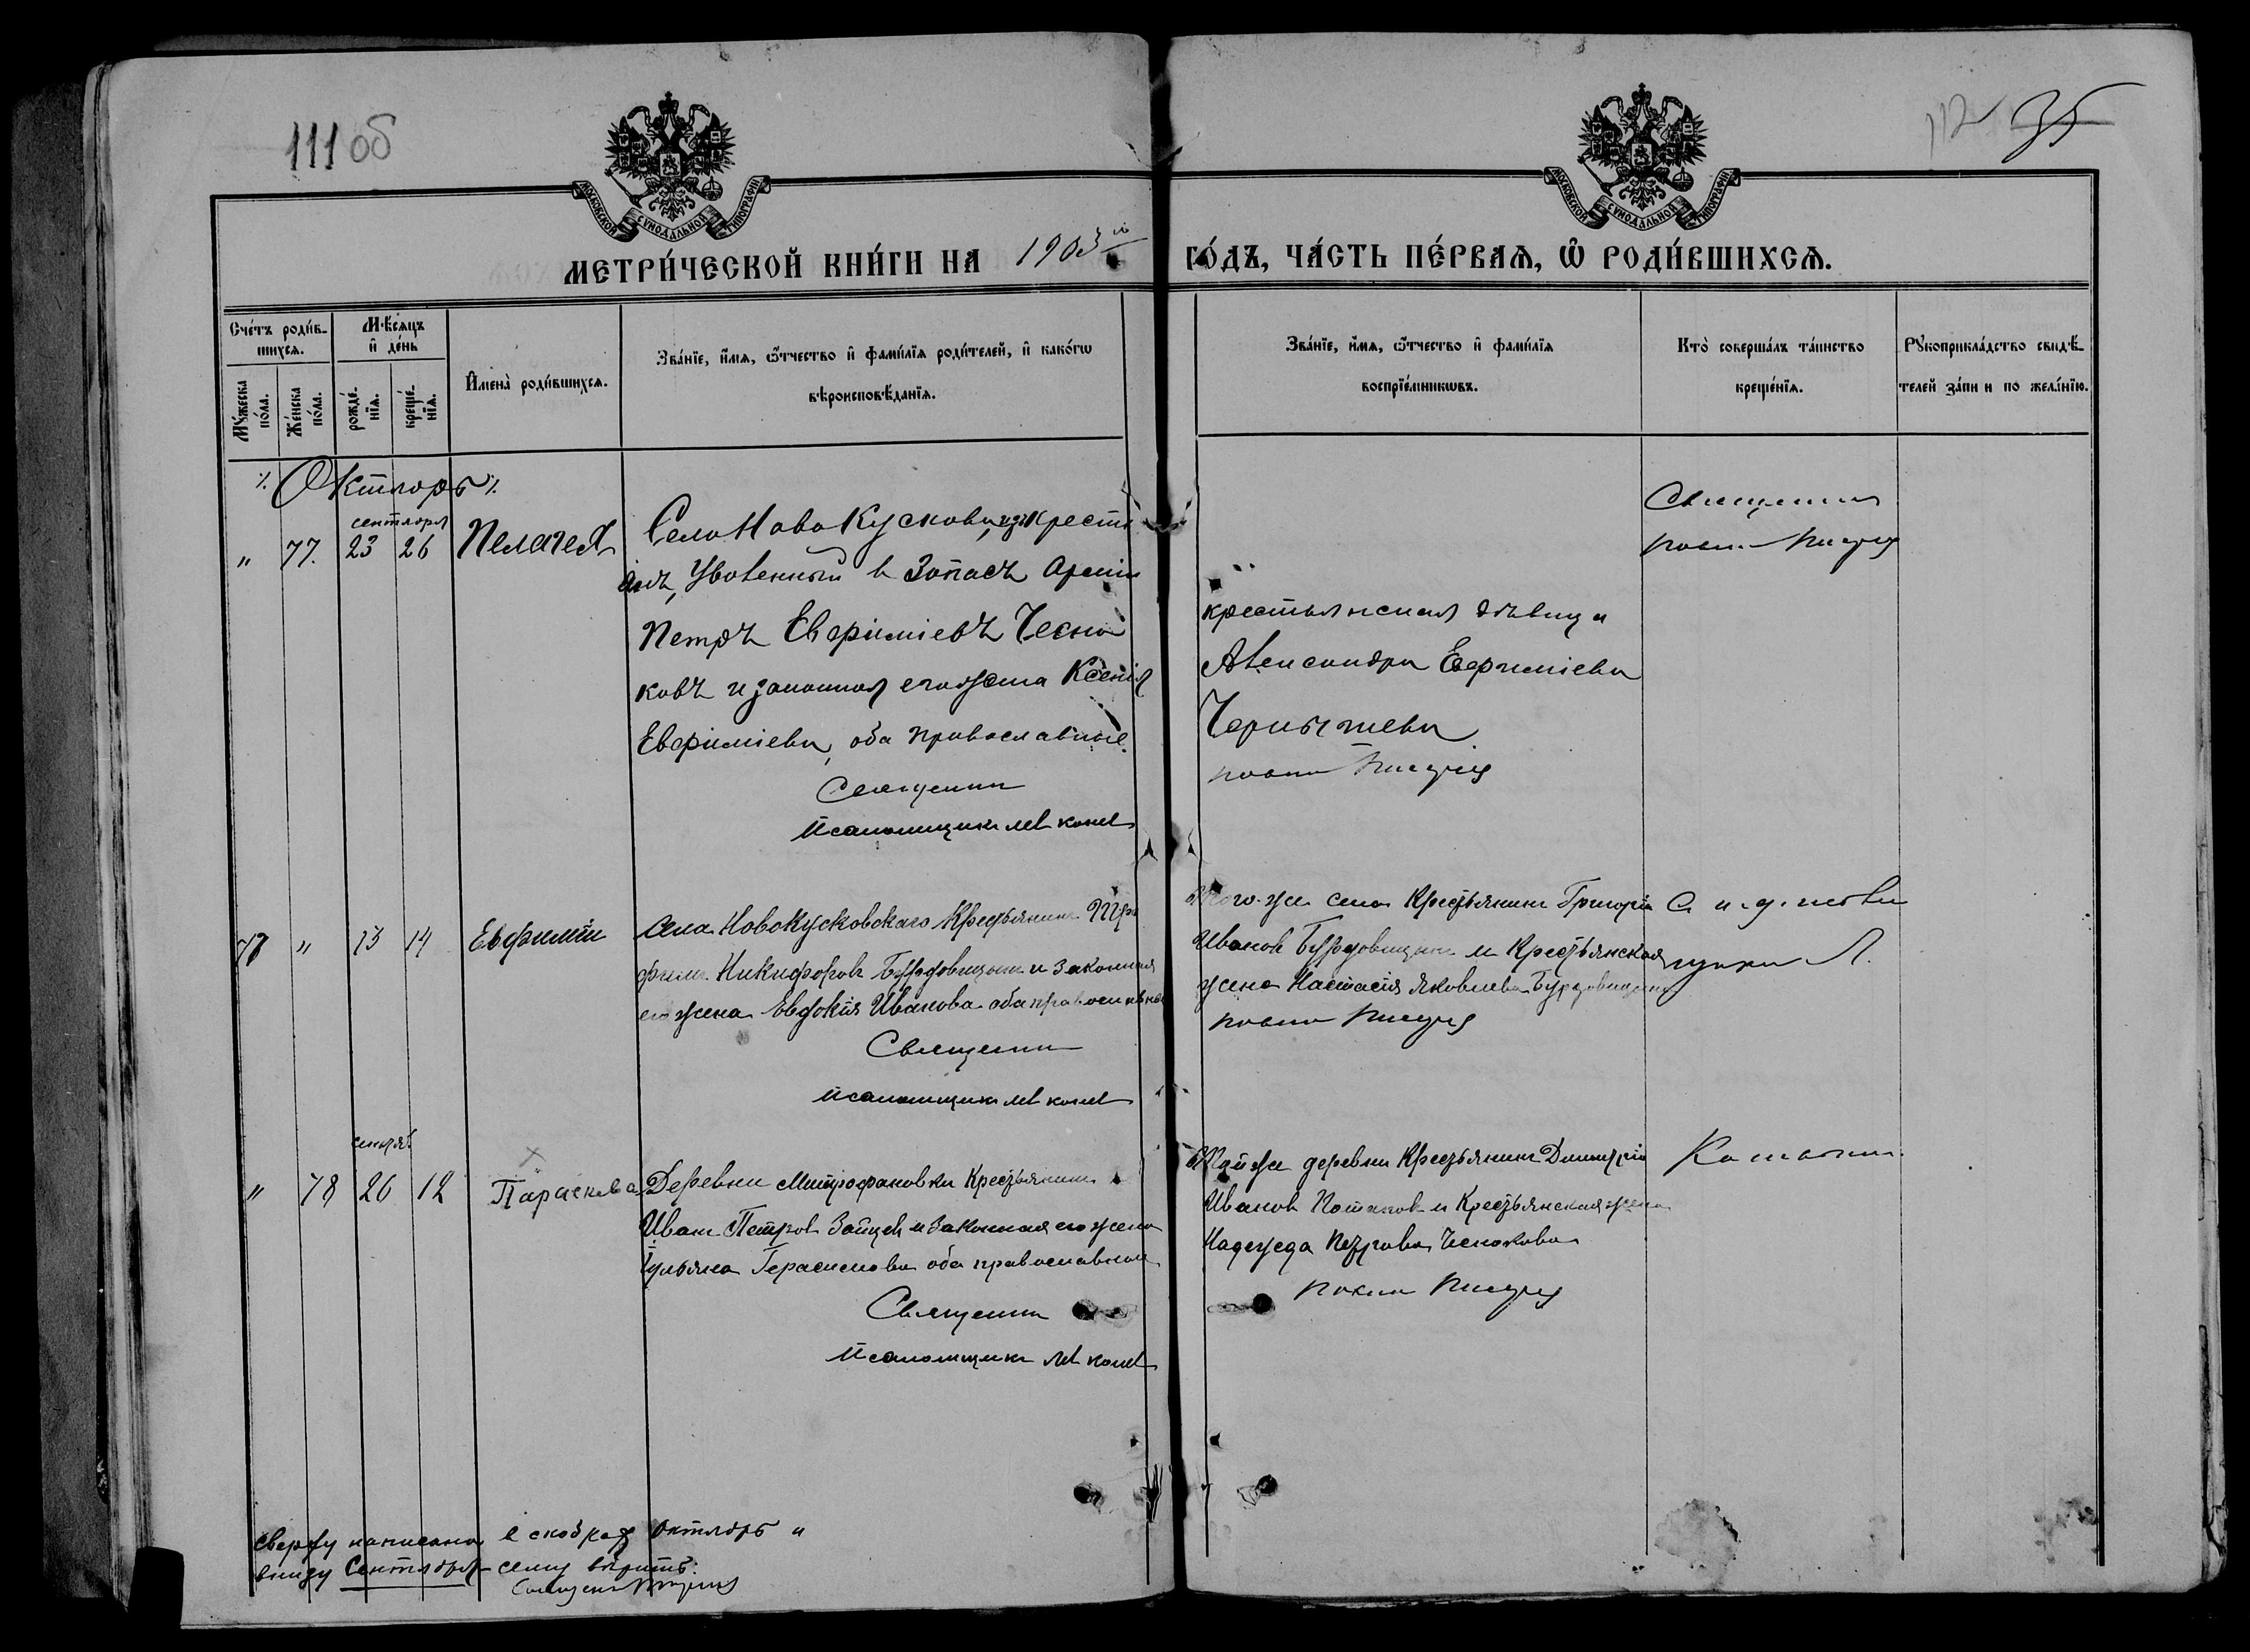 111 об
112 35
МОСКОВСКОЙ СУНОДАЛЬНОЙ ТИПОГРАФІИ
МОСКОВСКОЙ СУНОДАЛЬНОЙ ТИПОГРАФІИ
МЕТРИ́ЧЕСКОЙ КНИ́ГИ НА 1903 й ГО́ДЪ, ЧА́СТЬ ПЕ́РВАѦ, Ѽ РОДИ́ВШИХСѦ.
Сче́тъ роди́в-
шихсѧ.
Мꙋ́жеска по́ла.
Же́нска по́ла.
М-ѣсѧцъ
и҆ де́нь
рожде́-
нїѧ.
креще́-
нїѧ.
И҆мена̀ роди́вшихсѧ.
Зва́нїе, и҆́мѧ, ѻ҆́тчество и҆ фами́лїѧ роди́телей, и҆ како́гѡ
вѣроисповѣ́данїѧ.
Зва́нїе, и҆́мѧ, ѻ҆́тчество и҆ фами́лїѧ
воспрїе́мникѡвъ.
Кто̀ соверша́лъ та́инство
креще́нїѧ.
Рꙋкоприкла́дство свидѣ́-
телей за́пи и по жела́нїю.
Октябрь
сентября
" 77. 23 26 Пелагея
Село Ново Кусково, изъ крестьянъ, уволенный в запасъ Арміи
Петръ Евфиміевъ Чесно
ковъ и законная его жена Ксенія
Евфиміева, оба православные.
Священник
Псаломщикъ
крестьянская дѣвица
Александра Евфиміева
Чернышева
Священник
77 " 13 14 Евфимій
Села Новокусковскаго Крестьянинъ Тро
фимъ Никифоровъ Бурдовицынъ и законная
его жена Евдокія Иванова оба православные
Священник
Псаломщикъ
Того-же села Крестьянинъ Григорій
Ивановъ Бурдовицынъ и Крестьянская
жена Настасія Яковлева Бурдовицына
сентяб
" 78 26 12 Параскева
Деревни Митрофановки Крестьянинъ
Иванъ Петровъ Зайцевъ и законная его жена
Гульяна Герасимова оба православные
Священник
Псаломщикъ
Той же деревни Крестьянинъ Димитрій
Ивановъ Потаповъ и Крестьянская жена
Надежда Петрова Чеснокова
Сверху написано в скобках Октябрь и
внизу Сентября - сему вѣрить: